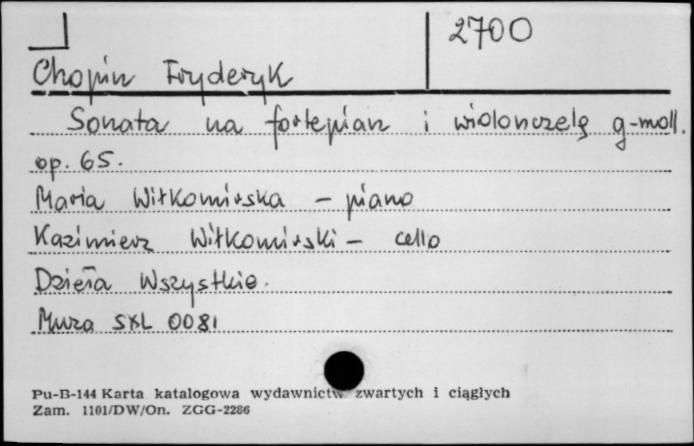 2700
Chopin Fryderyk
Sonata na fortepian i wiolonczelę g-moll.
op. 65.
Maria Wiłkomirska - piano
Kazimierz Wiłkomirski - cello
Dzieła Wszystkie.
Muza SXL 0081
Pu-B-144 Karta katalogowa wydawnictw zwartych i ciągłych
Zam. 1101/DW/On. ZGG-2286